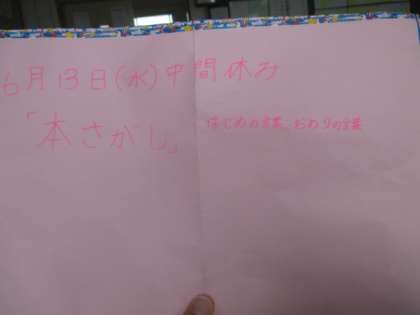 6月13日(水)中間休み
「本さがし」 はじめの言葉・おわりの言葉